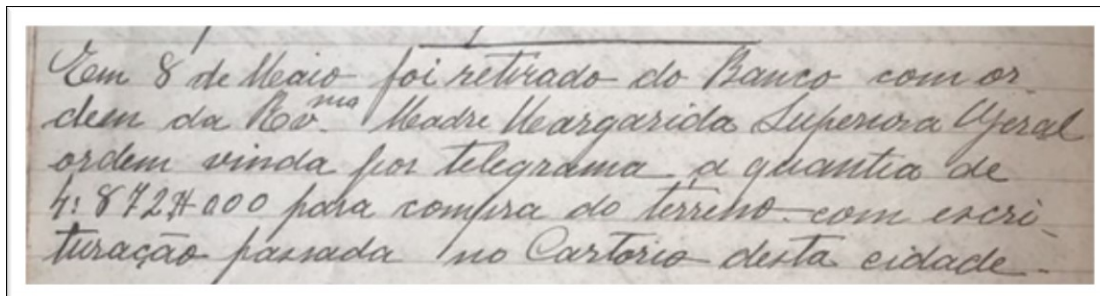 Em 8 de Maio foi retirado do Banco com or
dem da Rvma. Madre Margarida Superiora Geral
ordem vinda por telegrama a quantia de
4:872$000 para compra do terreno com escri
turação passada no Cartorio desta cidade.